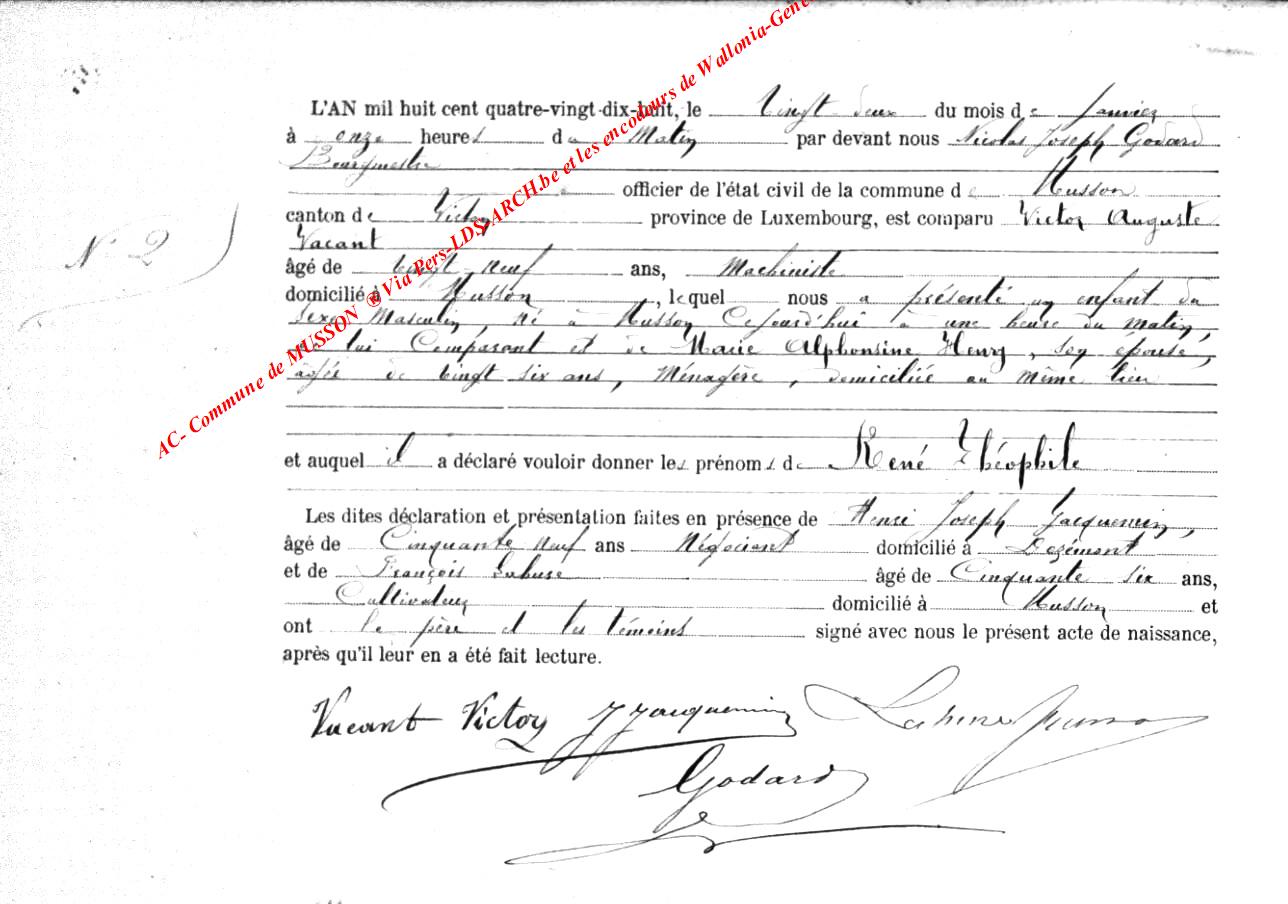 AC- Commune de MUSSON ® Via Pers-LDS-ARCH.be et les encodeurs de Wallonia-Gene
L'AN mil huit cent quatre-vingt-dix-huit, le Vingt deux du mois de Janvier
à onze heures du Matin par devant nous Nicolas Joseph Godard
Bourgmestre
officier de l'état civil de la commune de Musson
canton de Virton province de Luxembourg, est comparu Victor Auguste
Vacant
N° 2
âgé de vingt-neuf ans, Machiniste
domicilié à Musson, lequel nous a présenté un enfant du
sexe Masculin, né à Musson Cejourd'hui à une heure du matin,
de lui Comparant et de Marie Alphonsine Henry, son épouse,
agée de vingt six ans, Ménagère, domiciliée au même lieu
et auquel il a déclaré vouloir donner les prénoms de René Théophile
Les dites déclaration et présentation faites en présence de Henri Joseph Jacquemin,
âgé de Cinquante neuf ans Négociant domicilié à
et de François Lahure âgé de Cinquante six ans,
Cultivateur domicilié à Musson et
ont le père et les témoins signé avec nous le présent acte de naissance,
après qu'il leur en a été fait lecture.
Vacant Victor J Jacquemin
Godard